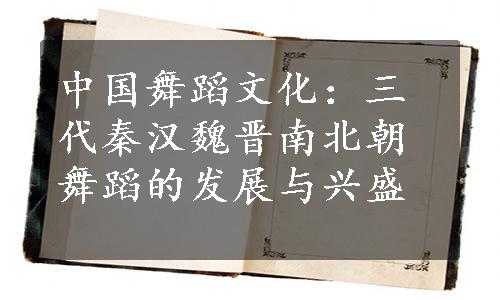 中国舞蹈文化：三
代秦汉魏晋南北朝
舞蹈的发展与兴盛